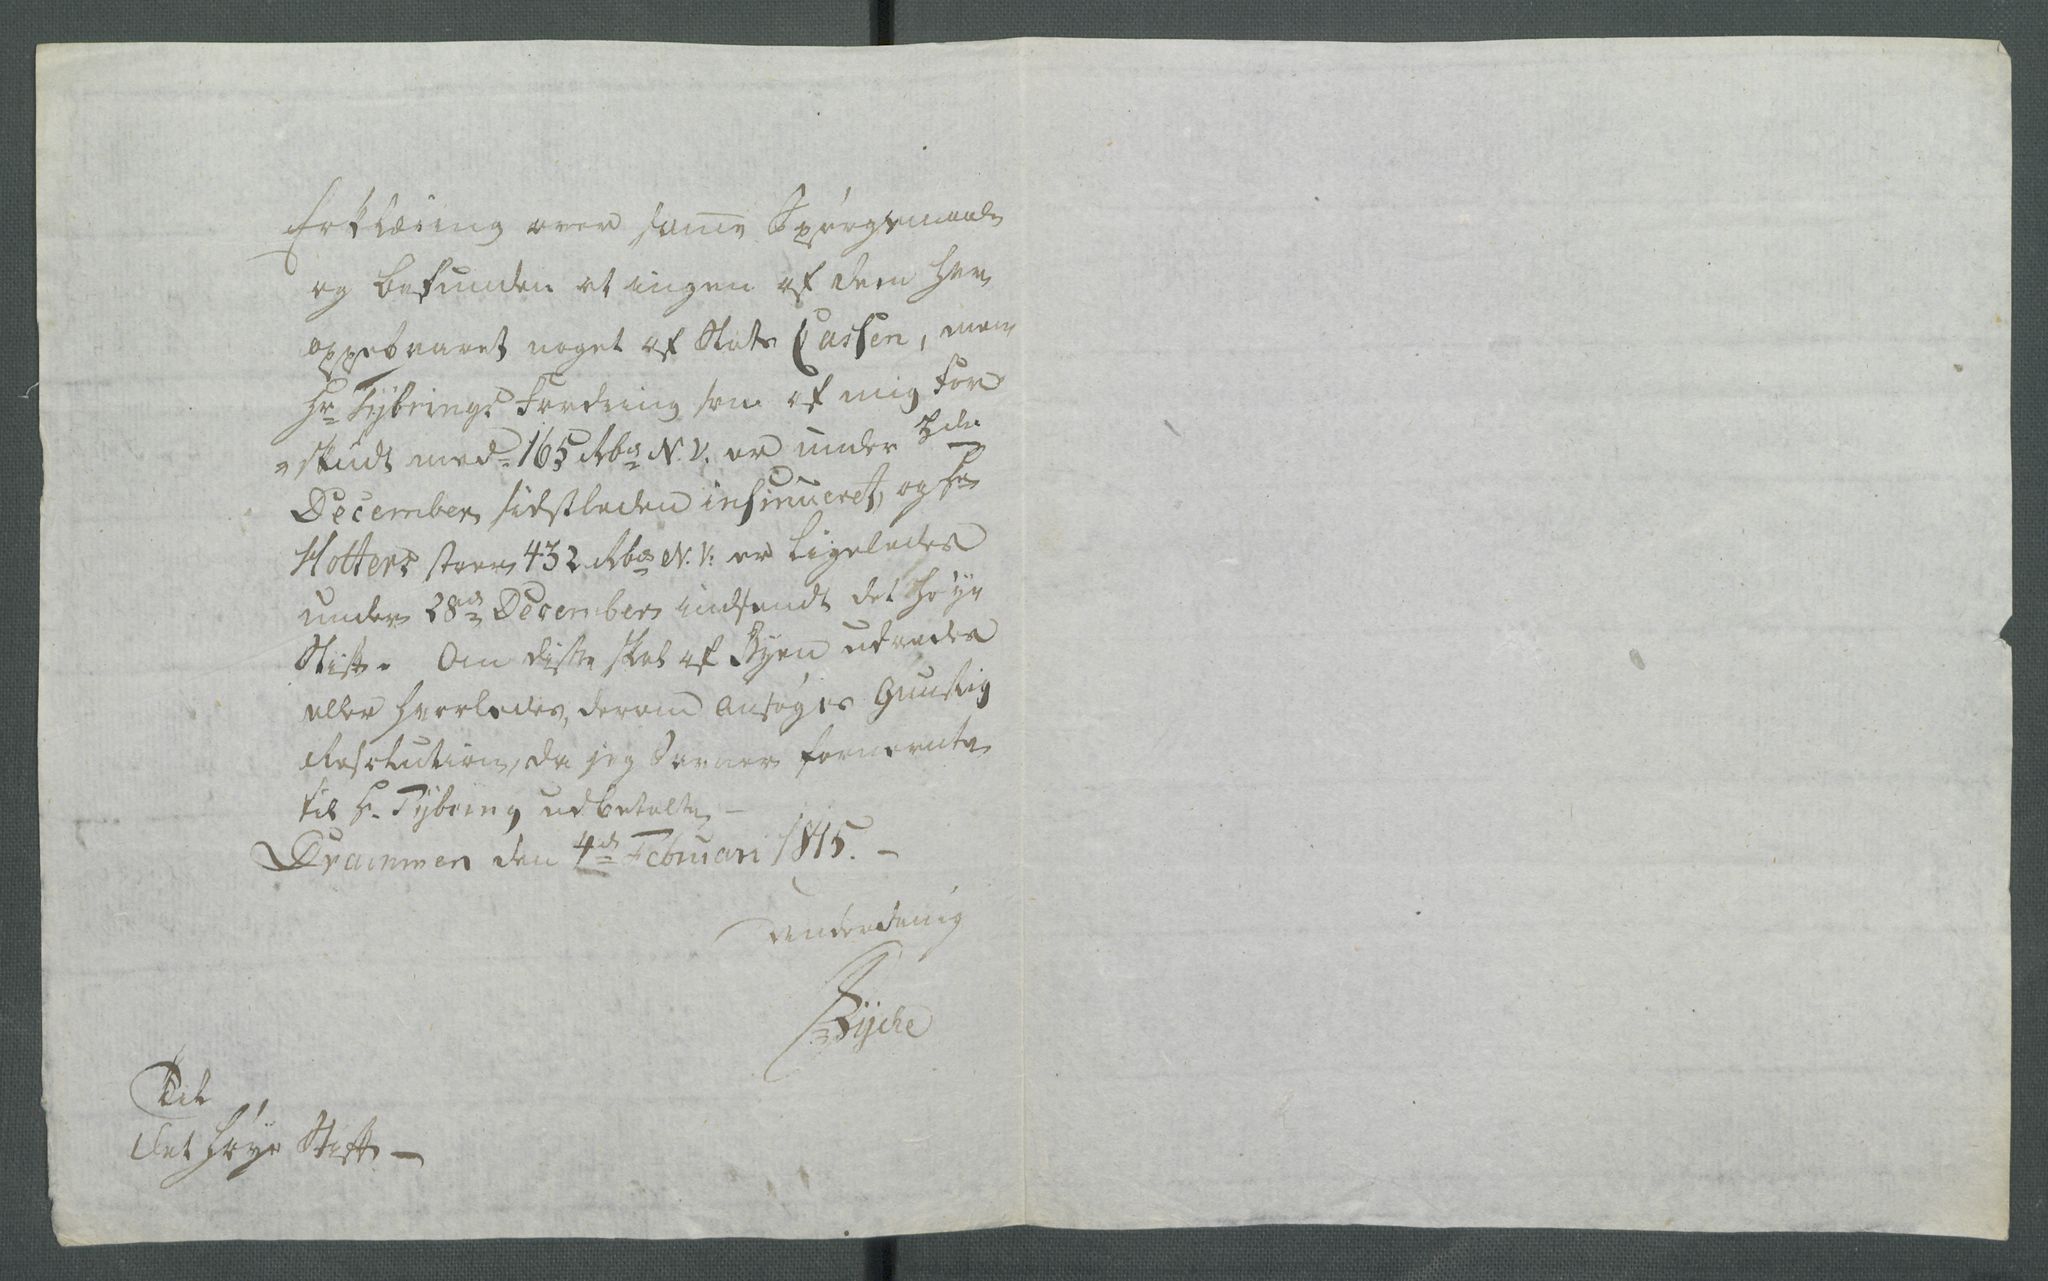 Erklæring over samme Spørgsmaale
og befunden at ingen af dem har
oppebaaret noget af Stats Cassen, men
Hr Tybrings Fordring som af mig for
skudt med 165 Rbd N.V. er under
December sidstleden insinueret, og Hr
Hotters stor 432 Rbd N.V. er ligeledes
under 28de December indsendt det høye
Stift. Om disse skal af Byen udredes
eller hvorledes, derom ansøges Gunstig
Resolution, da jeg savner fornevnte
til H. Tybring udbetalte –
Drammen den 4de Februari 1815. –
underdanig
Til
det høye Stift –